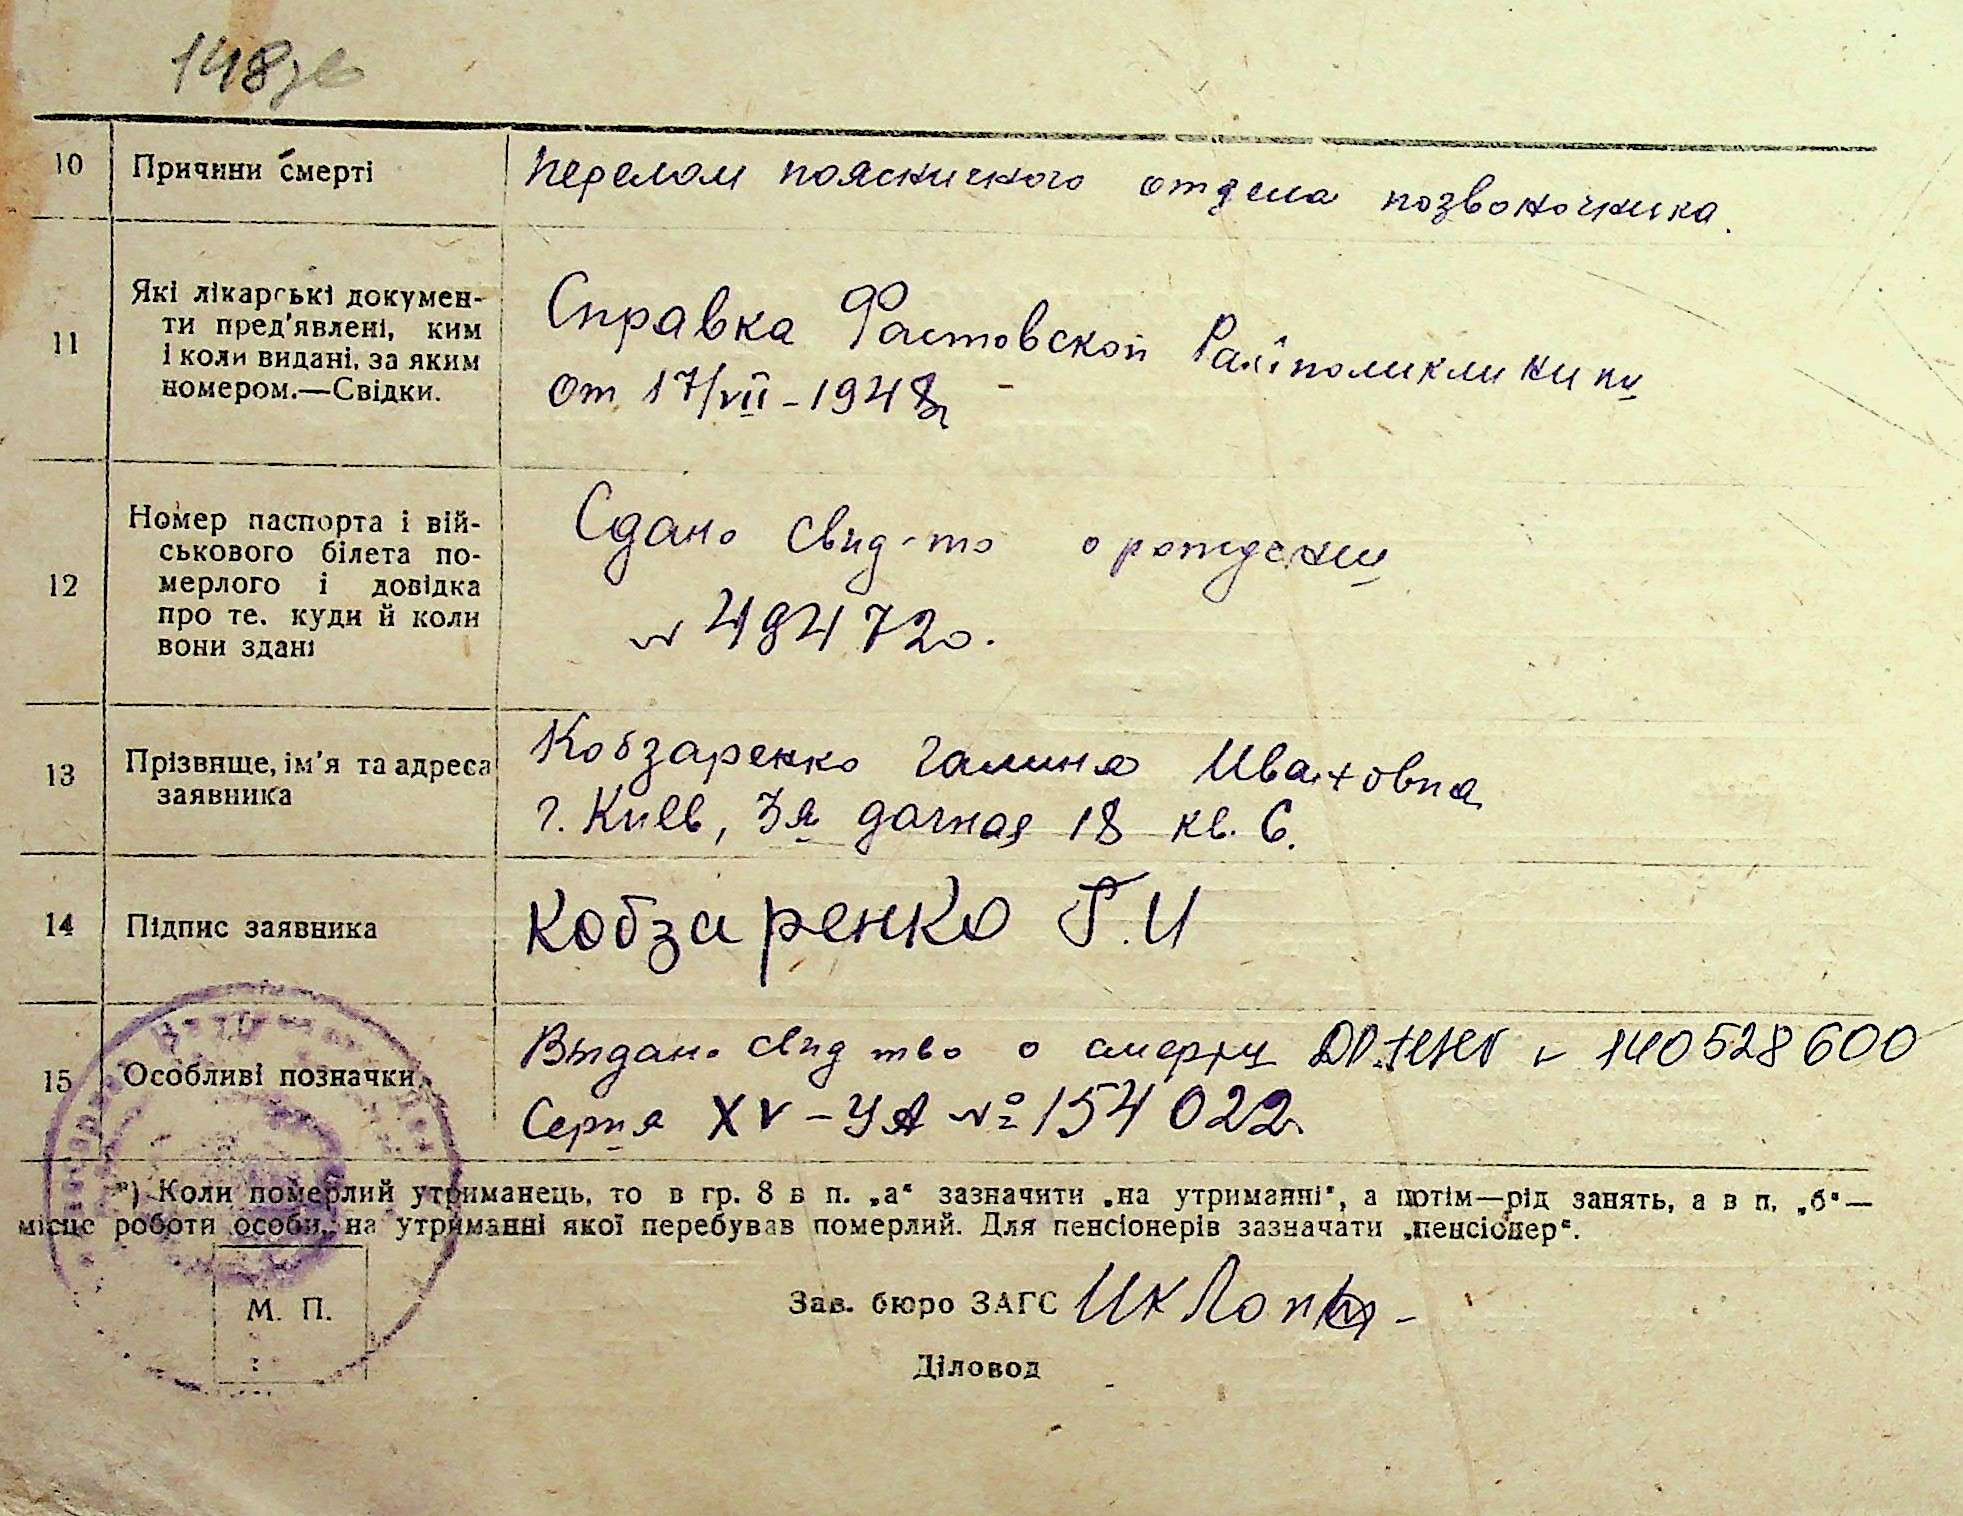 148
10 Причини смерті Перелом поясничного отдела позвоночника.
11 Які лікарські докумен-
ти пред'явлені, ким
і коли видані, за яким
номером.—Свідки.
Справка Фастовской Райполиклиники
от 17/VII-1948г
12 Номер паспорта і вій-
ськового білета по-
мерлого і довідка
про те, куди й коли
вони здані
Сдано свид-то о рождении
№ 484720.
13 Прізвище, ім'я та адреса
заявника
Кобзаренко Галина Ивановна
г. Киев, 3я дачная 18 кв. 6.
14 Підпис заявника Кобзаренко Г.И
15 Особливі позначки
Выдано свид тво о смерти 140528600
Серия XV-УА № 154022
*) Коли померлий утриманець, то в гр. 8 в п. „а“ зазначити „на утриманні“, а потім—рід занять, а в п. „б“—
місце роботи особи, на утриманні якої перебував померлий. Для пенсіонерів зазначати „пенсіонер“.
М. П.
Зав. бюро ЗАГС
Діловод